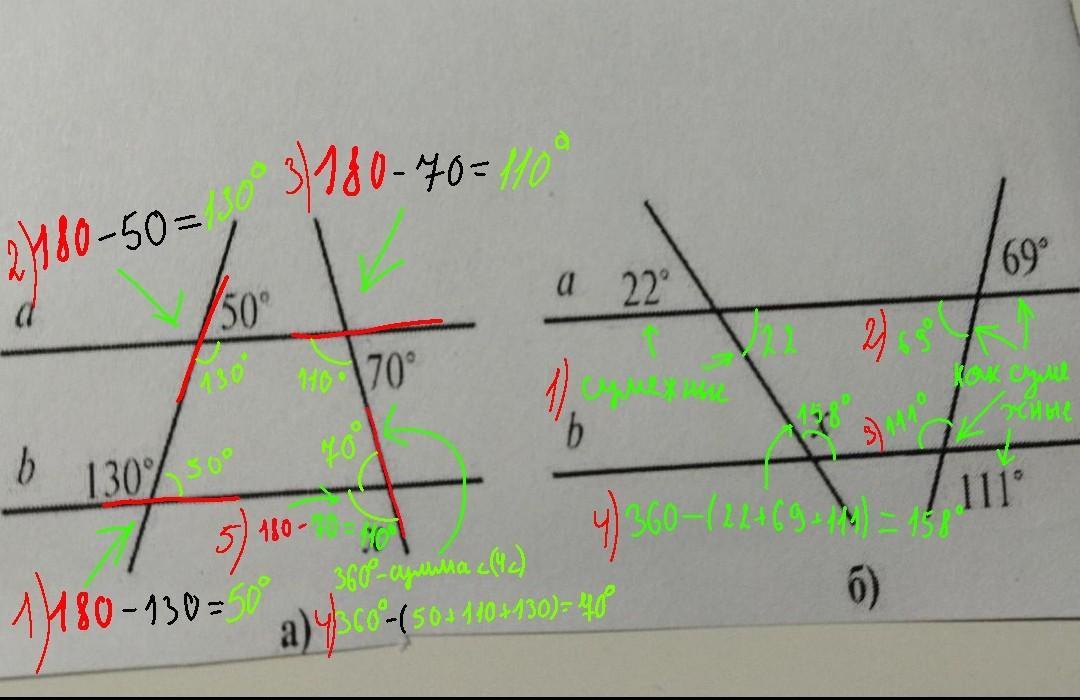 3) 180 - 70 = 110°
2) 180 - 50 = 130°
a
50°
130°
110°
70°
b
130°
50°
70°
5) 180 - 70 = 110°
360° - сумма < (4<)
1) 180 - 130 = 50°
а)
4) 360° - (50 + 110 + 130) = 70°
a
22°
69°
22
2) 69°
1) сумежные
как суме
жные
b
158°
3) 111°
111°
4) 360 - (22 + 69 + 111) = 158°
б)